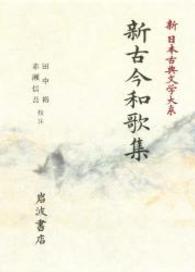 新日本古典文学大系
新古今和歌集
田中裕
赤瀬信吾
校注
岩波書店